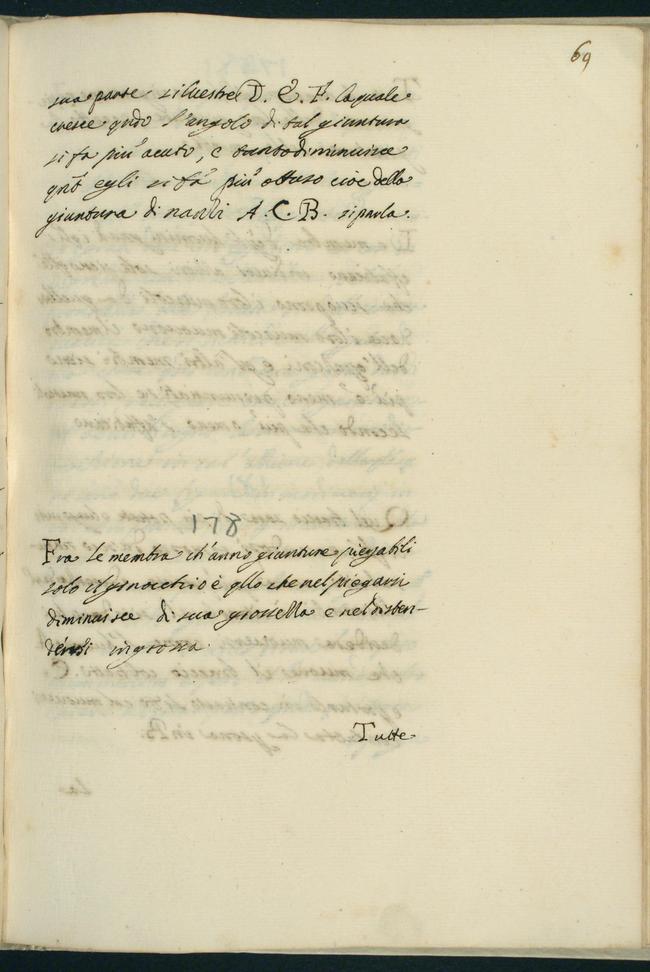 69
sua parte siluestre D. E. F. la quale
cresce qndo l'angolo di tal giuntura
si fa piu' acuto, e tanto diminuisce
qnto egli si fa piu' ottuso cioe della
giuntura di nanti A. C. B. si parla.
178
Fra le membra ch'anno giunture piegabili
solo il ginocchio è qllo che nel piegarsi
diminuisce di sua grossezza e nel disten-
dersi ingrossa.
Tutte